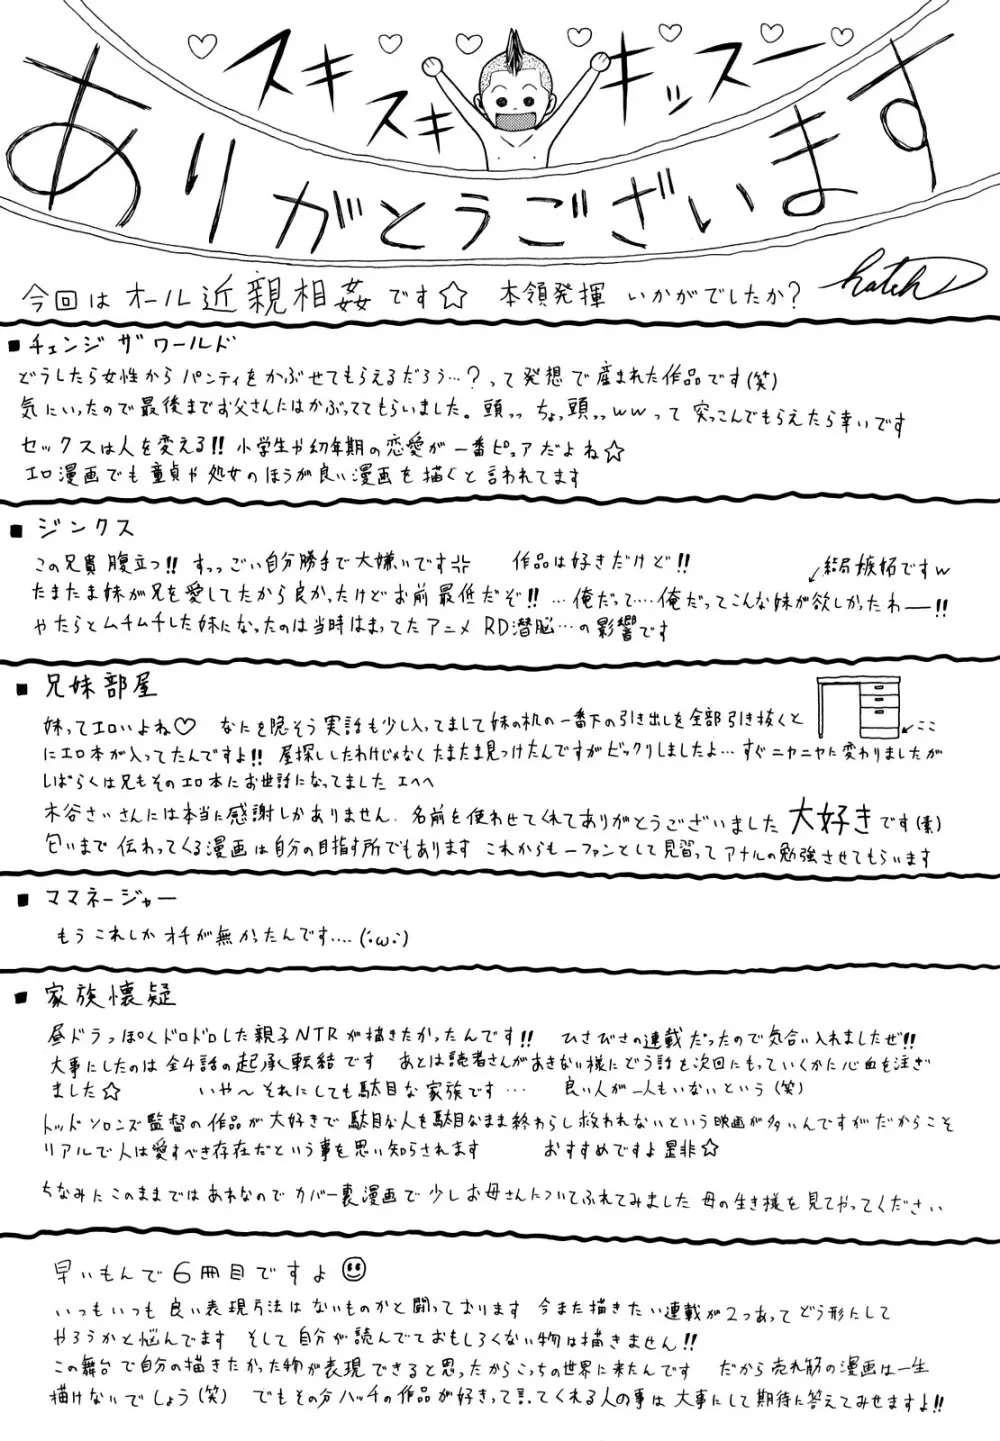 スキスキキッズー
ありがとうございます
hatch
今回はオール近親相姦です☆ 本領発揮 いかがでしたか?
■チェンジ ザ ワールド
どうしたら女性からパンティをかぶせてもらえるだろう…?って発想で産まれた作品です(笑)
気にいったので最後までお父さんにはかぶっててもらいました。頭ッッ ちょっ頭ッッwwって突っこんでもらえたら幸いです
セックスは人を変える!! 小学生や幼年期の恋愛が一番ピュアだよね☆
エロ漫画でも童貞や処女のほうが良い漫画を描くと言われてます
■ジンクス
この兄貴腹立つ!! すっっごい自分勝手で大嫌いです 作品は好きだけど!! 結局嫉妬ですw
たまたま妹が兄を愛してたから良かったけどお前最低だぞ!! …俺だって…俺だってこんな妹が欲しかったわー!!
やたらとムチムチした妹になったのは当時はまってたアニメ RD潜脳…の影響です
■兄妹部屋
妹ってエロいよね♡ なにを隠そう実話も少し入ってまして妹の机の一番下の引き出しを全部引き抜くと
ここ
にエロ本が入ってたんですよ!! 屋探ししたわけじゃなくたまたま見つけたんですがビックリしましたよ…すぐニヤニヤに変わりましたが
しばらくは兄もそのエロ本にお世話になってました エヘヘ
木谷さいさんには本当に感謝しかありません。名前を使わせてくれてありがとうございました 大好きです(素)
匂いまで伝わってくる漫画は自分の目指す所でもあります これからも一ファンとして見習ってアナルの勉強させてもらいます
■ママネージャー
もうこれしかオチが無かったんです….(´・ω・`)
■家族懐疑
昼ドラっぽくドロドロした親子NTRが描きたかったんです!! ひさびさの連載だったので気合い入れましたぜ!!
大事にしたのは全4話の起承転結です あとは読者さんがあきない様にどう話を次回にもっていくかに心血を注ぎ
ました☆ いや〜それにしても駄目な家族です… 良い人が一人もいないという(笑)
トッド ソロンズ監督の作品が大好きで駄目な人を駄目なまま終わらし救われないという映画が多いんですがだからこそ
リアルで人は愛すべき存在だという事を思い知らされます おすすめですよ是非☆
ちなみにこのままではあれなのでカバー裏漫画で少しお母さんについてふれてみました 母の生き様を見てやってください
早いもんで6冊目ですよ
いつもいつも良い表現方法はないものかと闘っております 今また描きたい連載が2つあってどう形にして
やろうかと悩んでます そして自分が読んでておもしろくない物は描きません!!
この舞台で自分の描きたかった物が表現できると思ったからこっちの世界に来たんです だから売れ筋の漫画は一生
描けないでしょう(笑) でもその分ハッチの作品が好きって言ってくれる人の事は大事にして期待に答えてみせますよ!!